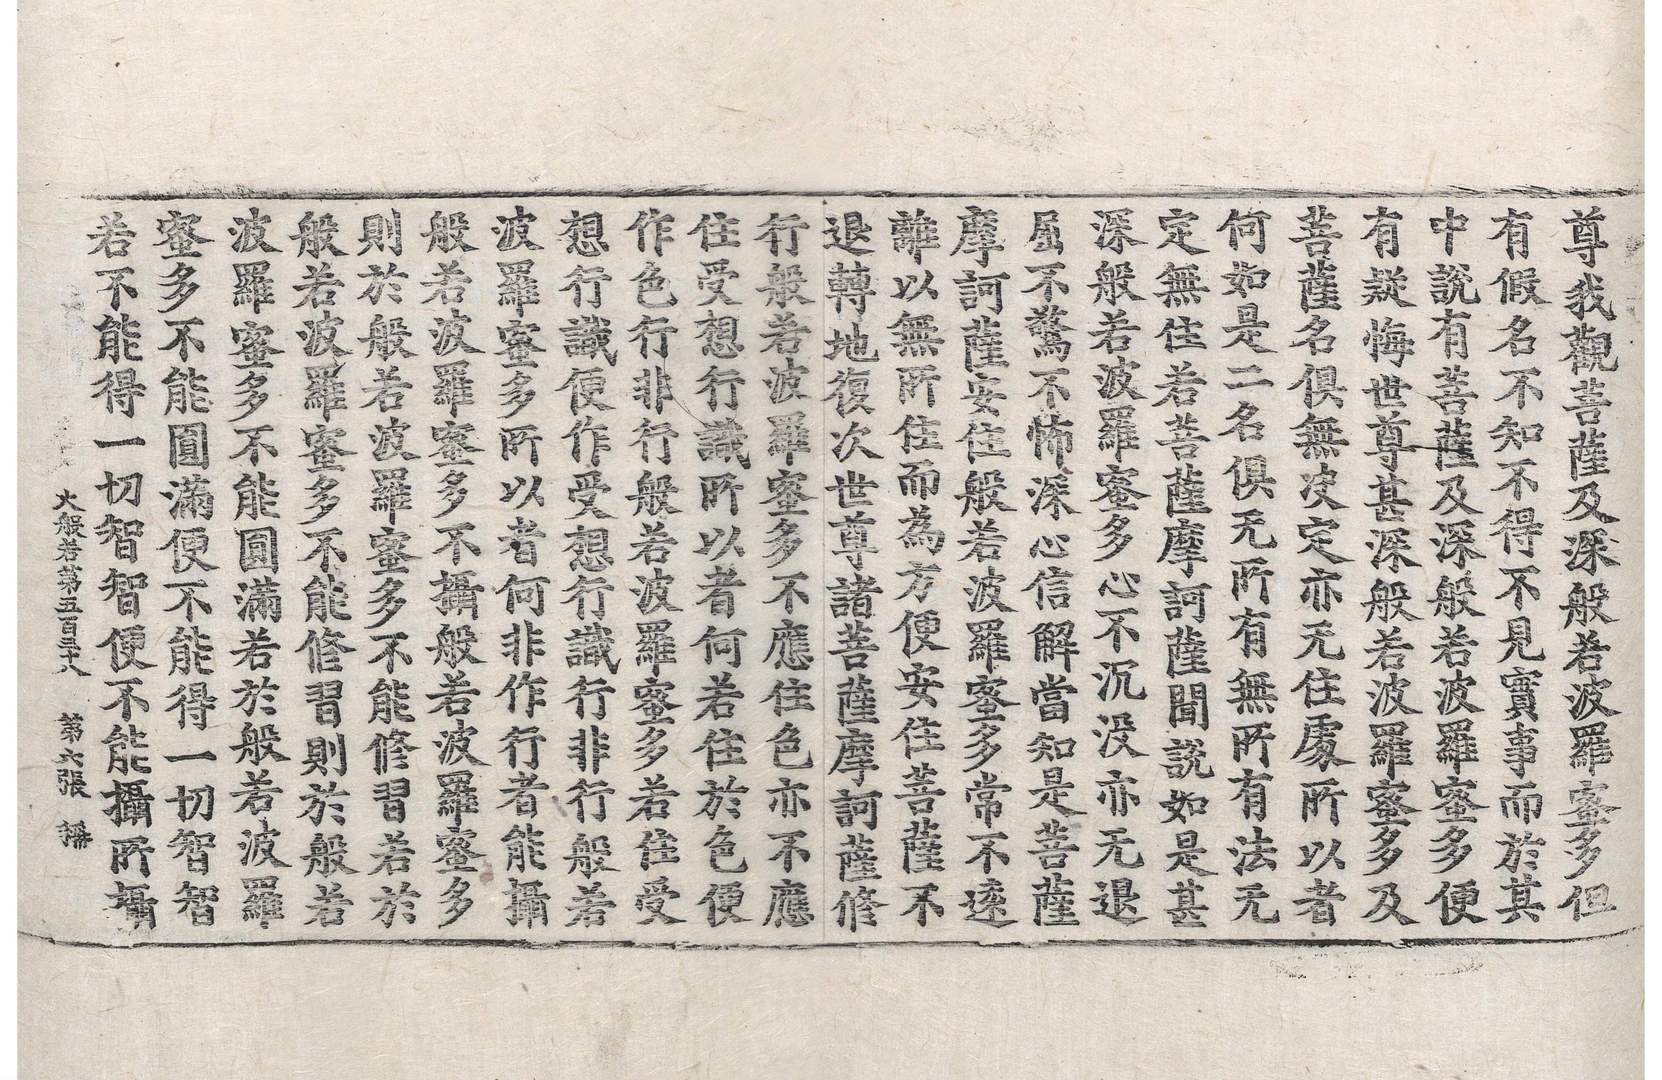 尊我觀菩薩及深般若波羅蜜多但
有假名不知不得不見實事而於其
中說有菩薩及深般若波羅蜜多便
有疑悔世尊甚深般若波羅蜜多及
菩薩名俱無决定亦无住處所以者
何如是二名俱无所有無所有法无
定無住若菩薩摩訶薩聞說如是甚
深般若波羅蜜多心不沉沒亦无退
屈不驚不怖深心信解當知是菩薩
摩訶薩安住般若波羅蜜多常不遠
離以無所住而為方便安住菩薩不
退轉地復次世尊諸菩薩摩訶薩修
行般若波羅蜜多不應住色亦不應
住受想行識所以者何若住於色便
作色行非行般若波羅蜜多若住受
想行識便作受想行識行非行般若
波羅蜜多所以者何非作行者能攝
般若波羅蜜多不攝般若波羅蜜多
則於般若波羅蜜多不能修習若於
般若波羅蜜多不能修習則於般若
波羅蜜多不能圓滿若於般若波羅
蜜多不能圓滿便不能得一切智智
若不能得一切智智便不能攝所攝
大般若第五百三十八 第六張